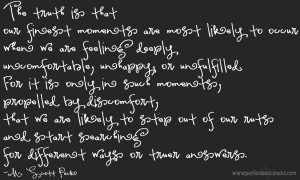 The truth is that
our finest moments are most likely to occur
when we are feeling deeply
uncomfortable, unhappy, or unfulfilled.
For it is only in such moments,
propelled by discomfort,
that we are likely to step out of our ruts
and start searching
for different ways or truer answers.
-M. Scott Peck
www.perfectpenzineent.com